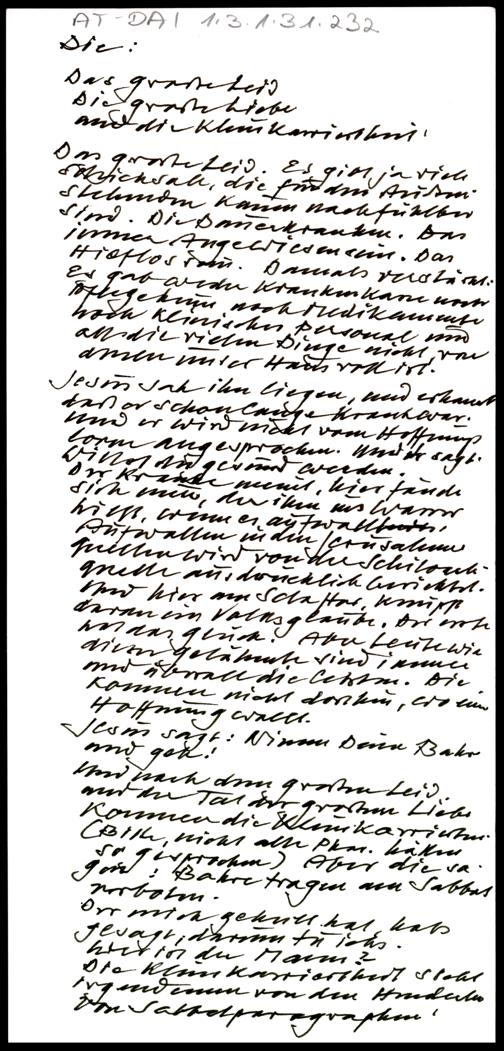 AT-DAI 1.3.1.31.232
Die:
Das große Leid
Die große Liebe
und die Kleinkariertheit!
Das große Leid. Es gibt ja viele
Schicksale, die für den Außen-
stehenden kaum nachfühlbar
sind. Die Dauerkranken. Das
immer Angewiesensein. Das
Hilflos sein. Damals verstärkt.
Es gab weder Krankenkasse noch
Pflegeheime noch Medikamente
noch klinisches Personal und
all die vielen Dinge nicht, von
denen unser Haus voll ist.
Jesus sah ihn liegen, und erkannt
daß er schon lange krank war.
Und er wird nicht vom Hoffnungs
angesprochen. Und er sagt:
Willst du gesund werden.
Der Kranke meint, hier fände
sich niem, der ihn ins Wasser
hießt, wenn es aufwallt.
Aufwallen in den Jerusalem
quellen wird von der Schiloach-
quelle ausdrücklich berichtet.
Und hier am Schaftor, knüpft
daran ein Volksglaube. Der erste
hat das Glück. Aber Leute wie
dieser gelähmte sind immer
und überall die Letzten. Die
kommen nicht dorthin, wo eine
Hoffnung wallt.
Jesus sagt: Nimm Deine Bahre
und geh!
Und nach dem großen Leid
und der Tat der großen Liebe
kommen die Kleinkarierten.
(Bitte, nicht alle Phar. hätten
so gesprochen) Aber die sa-
gen: Bahre tragen am Sabbat
verboten.
Der mich geheilt hat, hats
gesagt, darum tu ichs.
Wer ist der Mann?
Die Kleinkariertheit steht
irgendeinen von den Hunderten
von Sabbatparagraphen!